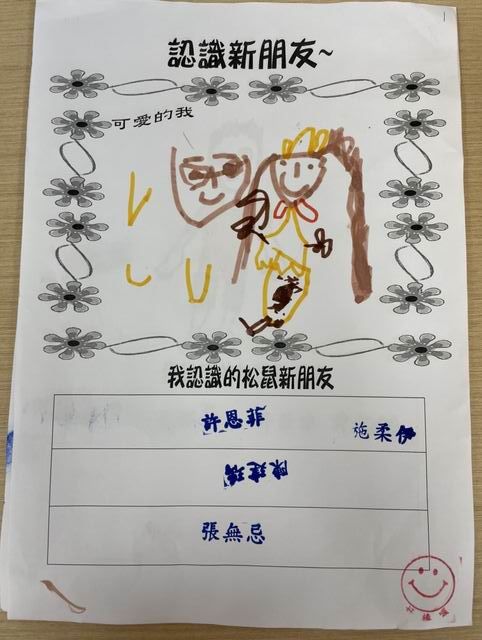 認識新朋友~
可愛的我
我認識的松鼠新朋友
許恩菲
施柔
陳建瑞
張無忌